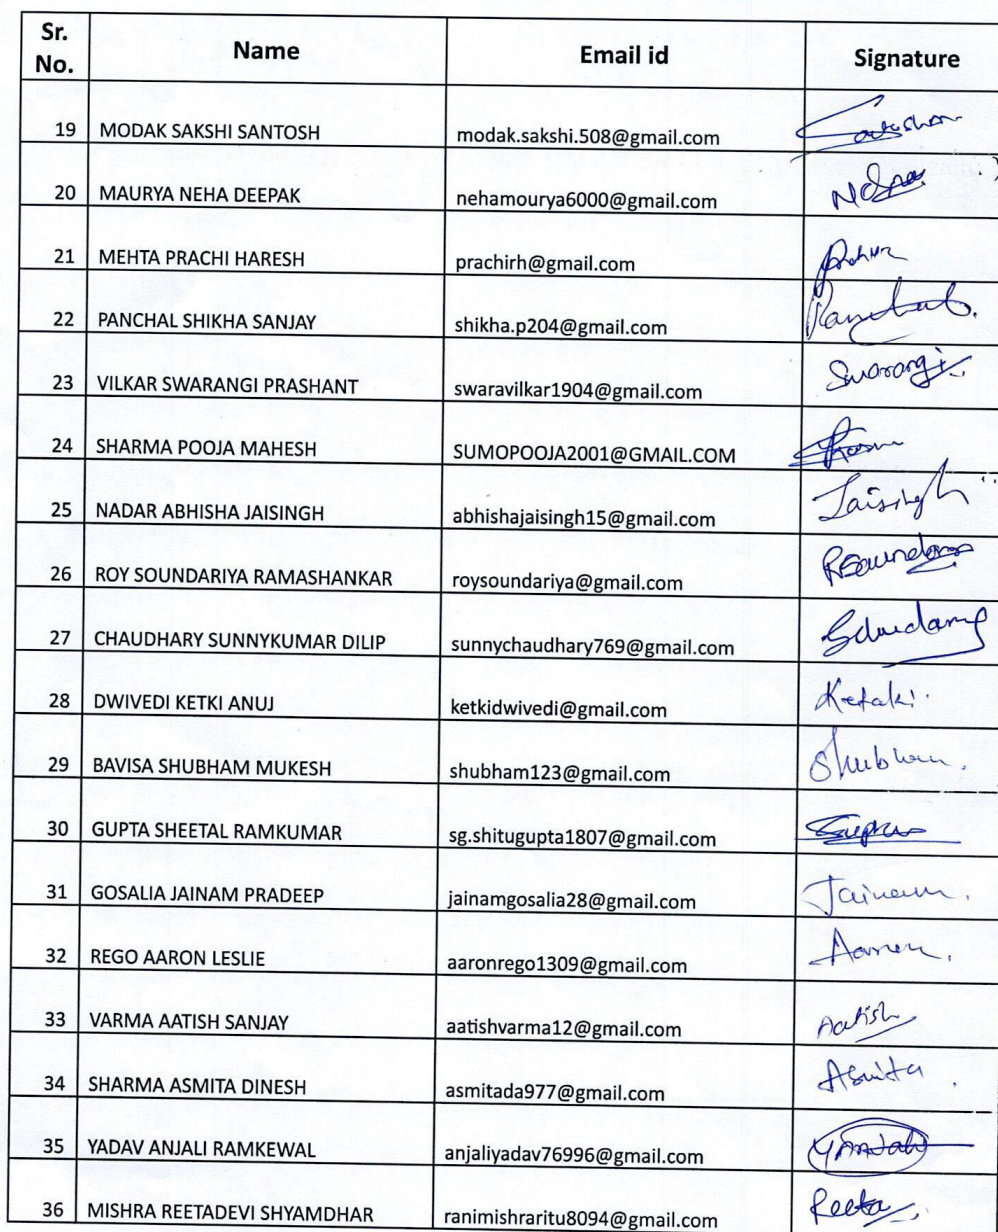 Sr. No. Name Email id Signature
19 MODAK SAKSHI SANTOSH modak.sakshi.508@gmail.com
20 MAURYA NEHA DEEPAK nehamourya6000@gmail.com Neha
21 MEHTA PRACHI HARESH prachirh@gmail.com
22 PANCHAL SHIKHA SANJAY shikha.p204@gmail.com
23 VILKAR SWARANGI PRASHANT swaravilkar1904@gmail.com Swarangi
24 SHARMA POOJA MAHESH SUMOPOOJA2001@GMAIL.COM
25 NADAR ABHISHA JAISINGH abhishajaisingh15@gmail.com Jaisingh
26 ROY SOUNDARIYA RAMASHANKAR roysoundariya@gmail.com
27 CHAUDHARY SUNNYKUMAR DILIP sunnychaudhary769@gmail.com
28 DWIVEDI KETKI ANUJ ketkidwivedi@gmail.com Ketaki.
29 BAVISA SHUBHAM MUKESH shubham123@gmail.com Shubham.
30 GUPTA SHEETAL RAMKUMAR sg.shitugupta1807@gmail.com
31 GOSALIA JAINAM PRADEEP jainamgosalia28@gmail.com Jainam.
32 REGO AARON LESLIE aaronrego1309@gmail.com Aaron.
33 VARMA AATISH SANJAY aatishvarma12@gmail.com Aatish
34 SHARMA ASMITA DINESH asmitada977@gmail.com Asmita
35 YADAV ANJALI RAMKEWAL anjaliyadav76996@gmail.com
36 MISHRA REETADEVI SHYAMDHAR ranimishraritu8094@gmail.com Reeta